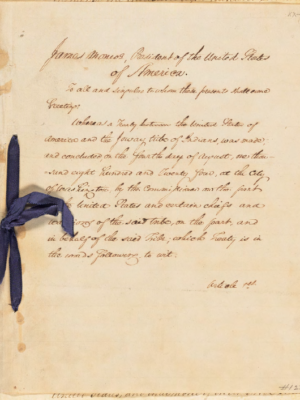 James Monroe, President of the United States
of America.
To all and singular to whom these presents shall come
Greeting:
Whereas a Treaty between the United States of
America and the Ioway tribe of Indians, was made
and concluded, on the fourth day of August, one thou-
sand eight hundred and Twenty Four, at the City
of Washington by the Commissioner on the part
United States and certain chiefs and
of the said Tribe, on the part, and
in behalf of the said Tribe; which Treaty is in
the words following, to wit:
Article 1st.